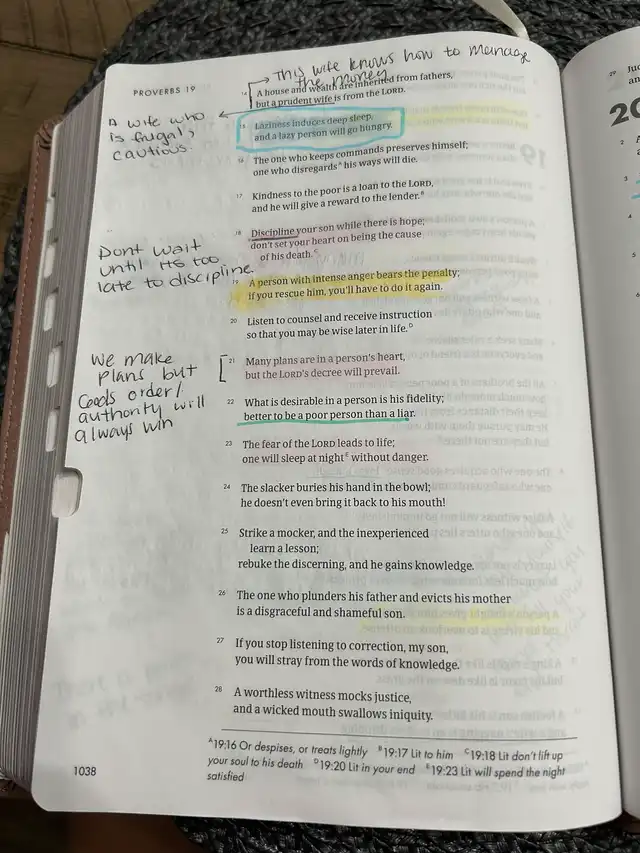 PROVERBS 19
This wife knows how to manage
the money
14 A house and wealth are inherited from fathers,
but a prudent wife is from the LORD.
A wife who
is frugal,
cautious.
15 Laziness induces deep sleep,
and a lazy person will go hungry.
16 The one who keeps commands preserves himself;
one who disregardsᴬ his ways will die.
17 Kindness to the poor is a loan to the LORD,
and he will give a reward to the lender.ᴮ
18 Discipline your son while there is hope;
don't set your heart on being the cause
of his death.ᶜ
Dont wait
until its too
late to discipline.
19 A person with intense anger bears the penalty;
if you rescue him, you'll have to do it again.
20 Listen to counsel and receive instruction
so that you may be wise later in life.ᴰ
21 Many plans are in a person's heart,
but the LORD's decree will prevail.
We make
plans but
Gods order/
authority will
always win
22 What is desirable in a person is his fidelity;
better to be a poor person than a liar.
23 The fear of the LORD leads to life;
one will sleep at nightᴱ without danger.
24 The slacker buries his hand in the bowl;
he doesn't even bring it back to his mouth!
25 Strike a mocker, and the inexperienced
learn a lesson;
rebuke the discerning, and he gains knowledge.
26 The one who plunders his father and evicts his mother
is a disgraceful and shameful son.
27 If you stop listening to correction, my son,
you will stray from the words of knowledge.
28 A worthless witness mocks justice,
and a wicked mouth swallows iniquity.
ᴬ19:16 Or despises, or treats lightly ᴮ19:17 Lit to him ᶜ19:18 Lit don't lift up
your soul to his death ᴰ19:20 Lit in your end ᴱ19:23 Lit will spend the night
satisfied
1038
29 Ju
an
20
2
3
4
5
6